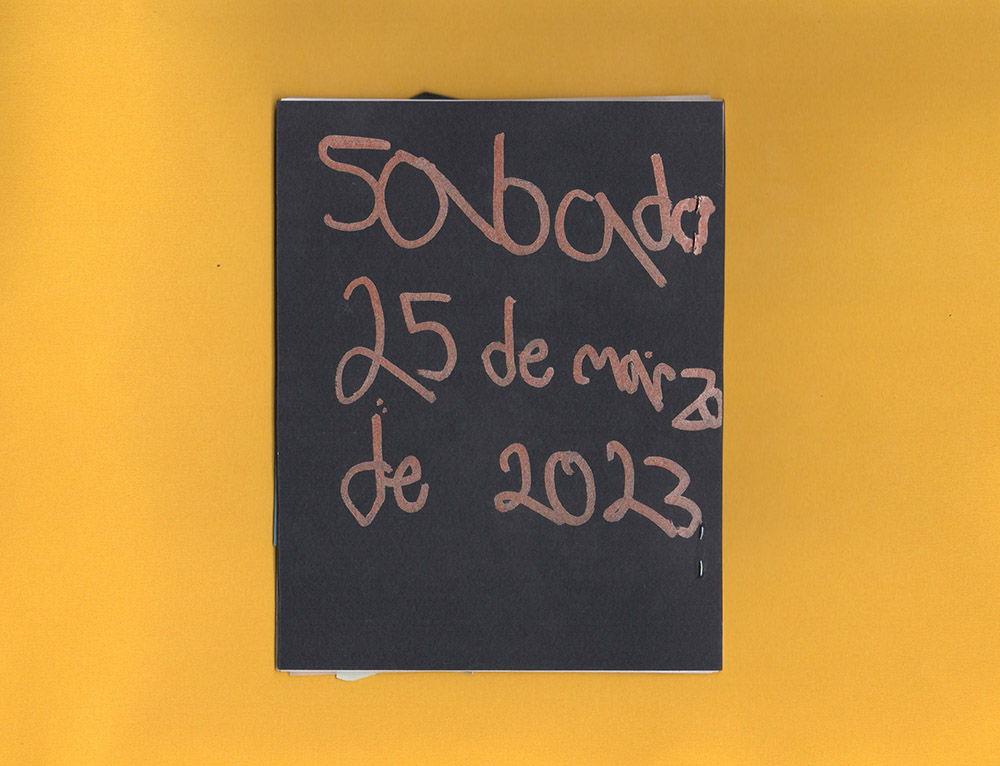 Sabado
25 de marzo
de 2023